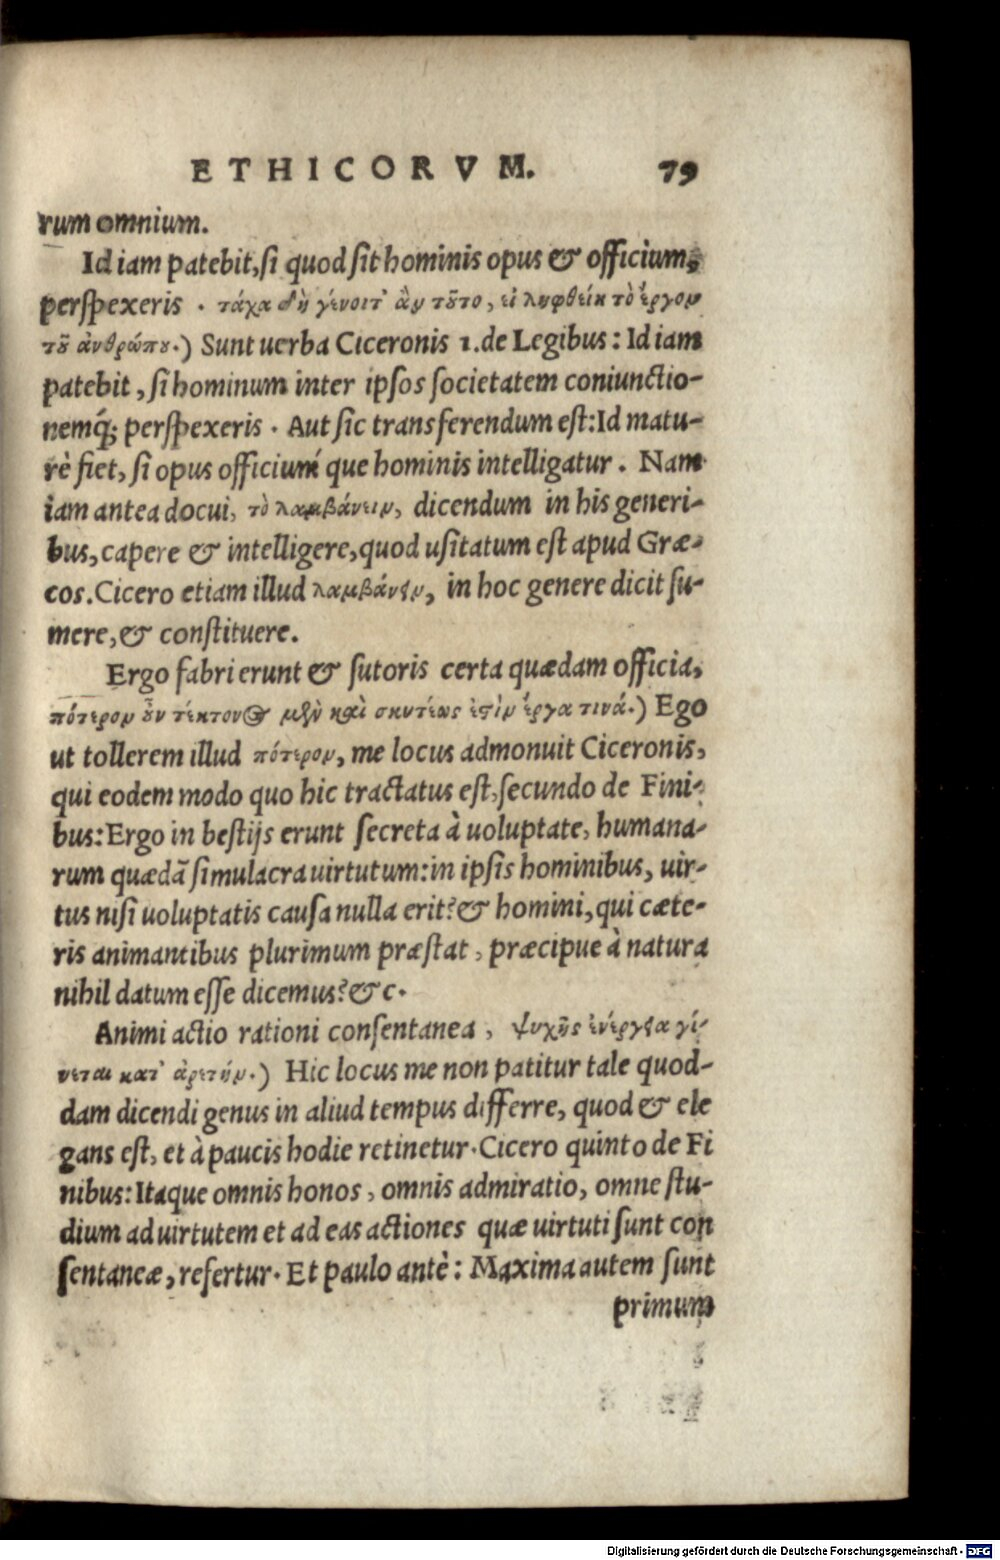 ETHICORVM. 79
rum omnium.
Id iam patebit, si quod sit hominis opus & officium,
perspexeris . τάχα δὴ γένοιτ' ἂν τοῦτο, εἰ ληφθείη τὸ ἔργον
τοῦ ἀνθρώπου.) Sunt uerba Ciceronis 1. de Legibus: Id iam
patebit, si hominum inter ipsos societatem coniunctio-
nemq́; perspexeris . Aut sic transferendum est: Id matu-
rè fiet, si opus officiumq́ que hominis intelligatur. Nam
iam antea docui, τὸ λαμβάνειν, dicendum in his generi-
bus, capere & intelligere, quod usitatum est apud Græ-
cos. Cicero etiam illud λαμβάνειν, in hoc genere dicit su-
mere, & constituere.
Ergo fabri erunt & sutoris certa quædam officia,
πότερον οὖν τέκτονος μὲν καὶ σκυτέως ἐστὶν ἔργα τινά.) Ego
ut tollerem illud πότερον, me locus admonuit Ciceronis,
qui eodem modo quo hic tractatus est, secundo de Fini-
bus: Ergo in bestijs erunt secreta à uoluptate, humana-
rum quædã simulacra uirtutum: in ipsis hominibus, uir-
tus nisi uoluptatis causa nulla erit? & homini, qui cæte-
ris animantibus plurimum præstat, præcipue à natura
nihil datum esse dicemus? &c.
Animi actio rationi consentanea, ψυχῆς ἐνέργεια γί-
νεται κατ' ἀρετήν.) Hic locus me non patitur tale quod-
dam dicendi genus in aliud tempus differre, quod & ele
gans est, et à paucis hodie retinetur. Cicero quinto de Fi
nibus: Itaque omnis honos, omnis admiratio, omne stu-
dium ad uirtutem et ad eas actiones quæ uirtuti sunt con
sentaneæ, refertur. Et paulo antè: Maxima autem sunt
primum
Digitalisierung gefördert durch die Deutsche Forschungsgemeinschaft - DFG